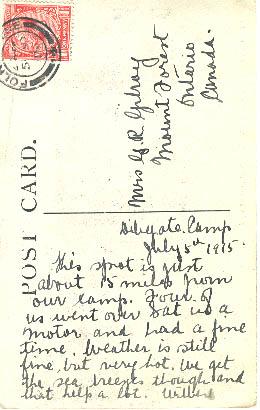 POST CARD.
Mrs G. R. Gilroy
Mount Forest
Ontario
Canada.
Dibgate Camp
July 5th 1915.
This spot is just
about 15 miles from
our camp. Four of
us went over Sat in a
motor and had a fine
time. Weather is still
fine but very hot. We get
the sea breezes though and
that helps a lot.